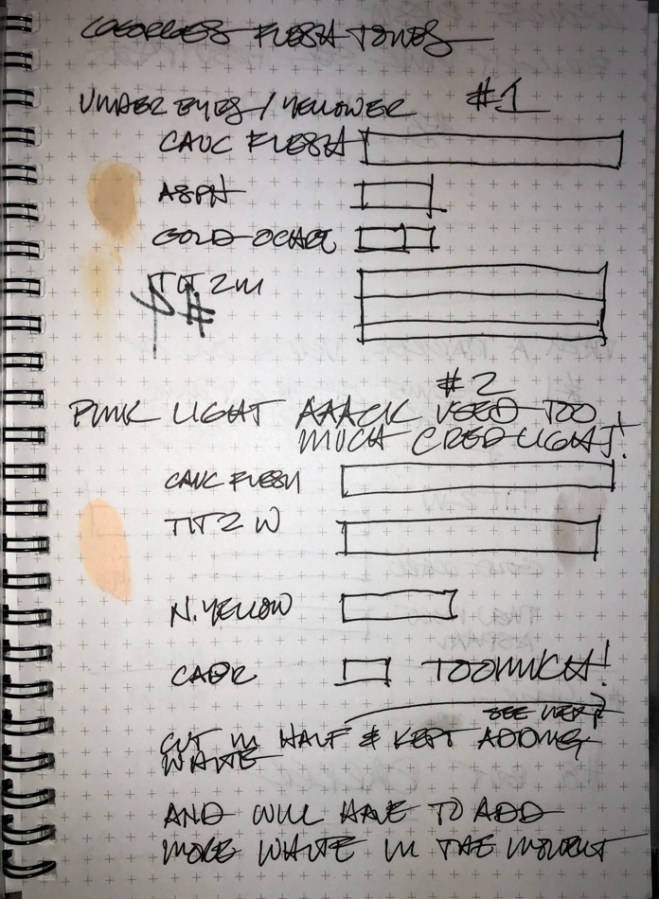 GEORGES FLESH TONES
UNDER EYES / YELLOWER #1
CAUC FLESH
ASPH
GOLD OCHRE
TIT 2W
#
#2
PINK LIGHT AAACK USED TOO
MUCH CRED LIGHT!
CAUC FLESH
TIT 2 W
N. YELLOW
CADR TOO MUCH!
SEE NEXT
CUT IN HALF & KEPT ADDING
WHITE
AND WILL HAVE TO ADD
MORE WHITE IN THE MOMENT